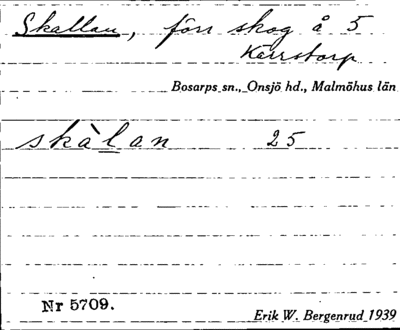 Skallan, förr skog å 5
Kärrstorp
Bosarps sn., Onsjö hd., Malmöhus län
skàlan 25
Nr 5709.
Erik W. Bergenrud 1939